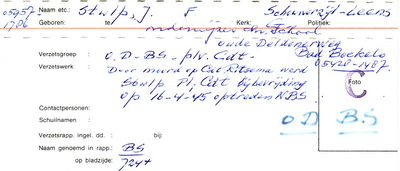 05957- Naam etc.: Stulp, J. F Schouwerzijl-Leens
1786 Geboren: te Kerk: G Politiek:
onderwijzer chr. School
oude Deldenerweg
Verzetsgroep : O.D-BS- plv. Cdt- Bad Boekelo
Verzetswerk : 05428-1487
Door moord op Cdt Ritsema werd
Stulp Pl. Cdt bij bevrijding
op 16-4-45 optreden NBS
Foto
C
Contactpersonen:
Schuilnamen :
O D BS
Verzetsrapp. ingel. dd. : bij:
Naam genoemd in rapp.: BS
op bladzijde: 724+